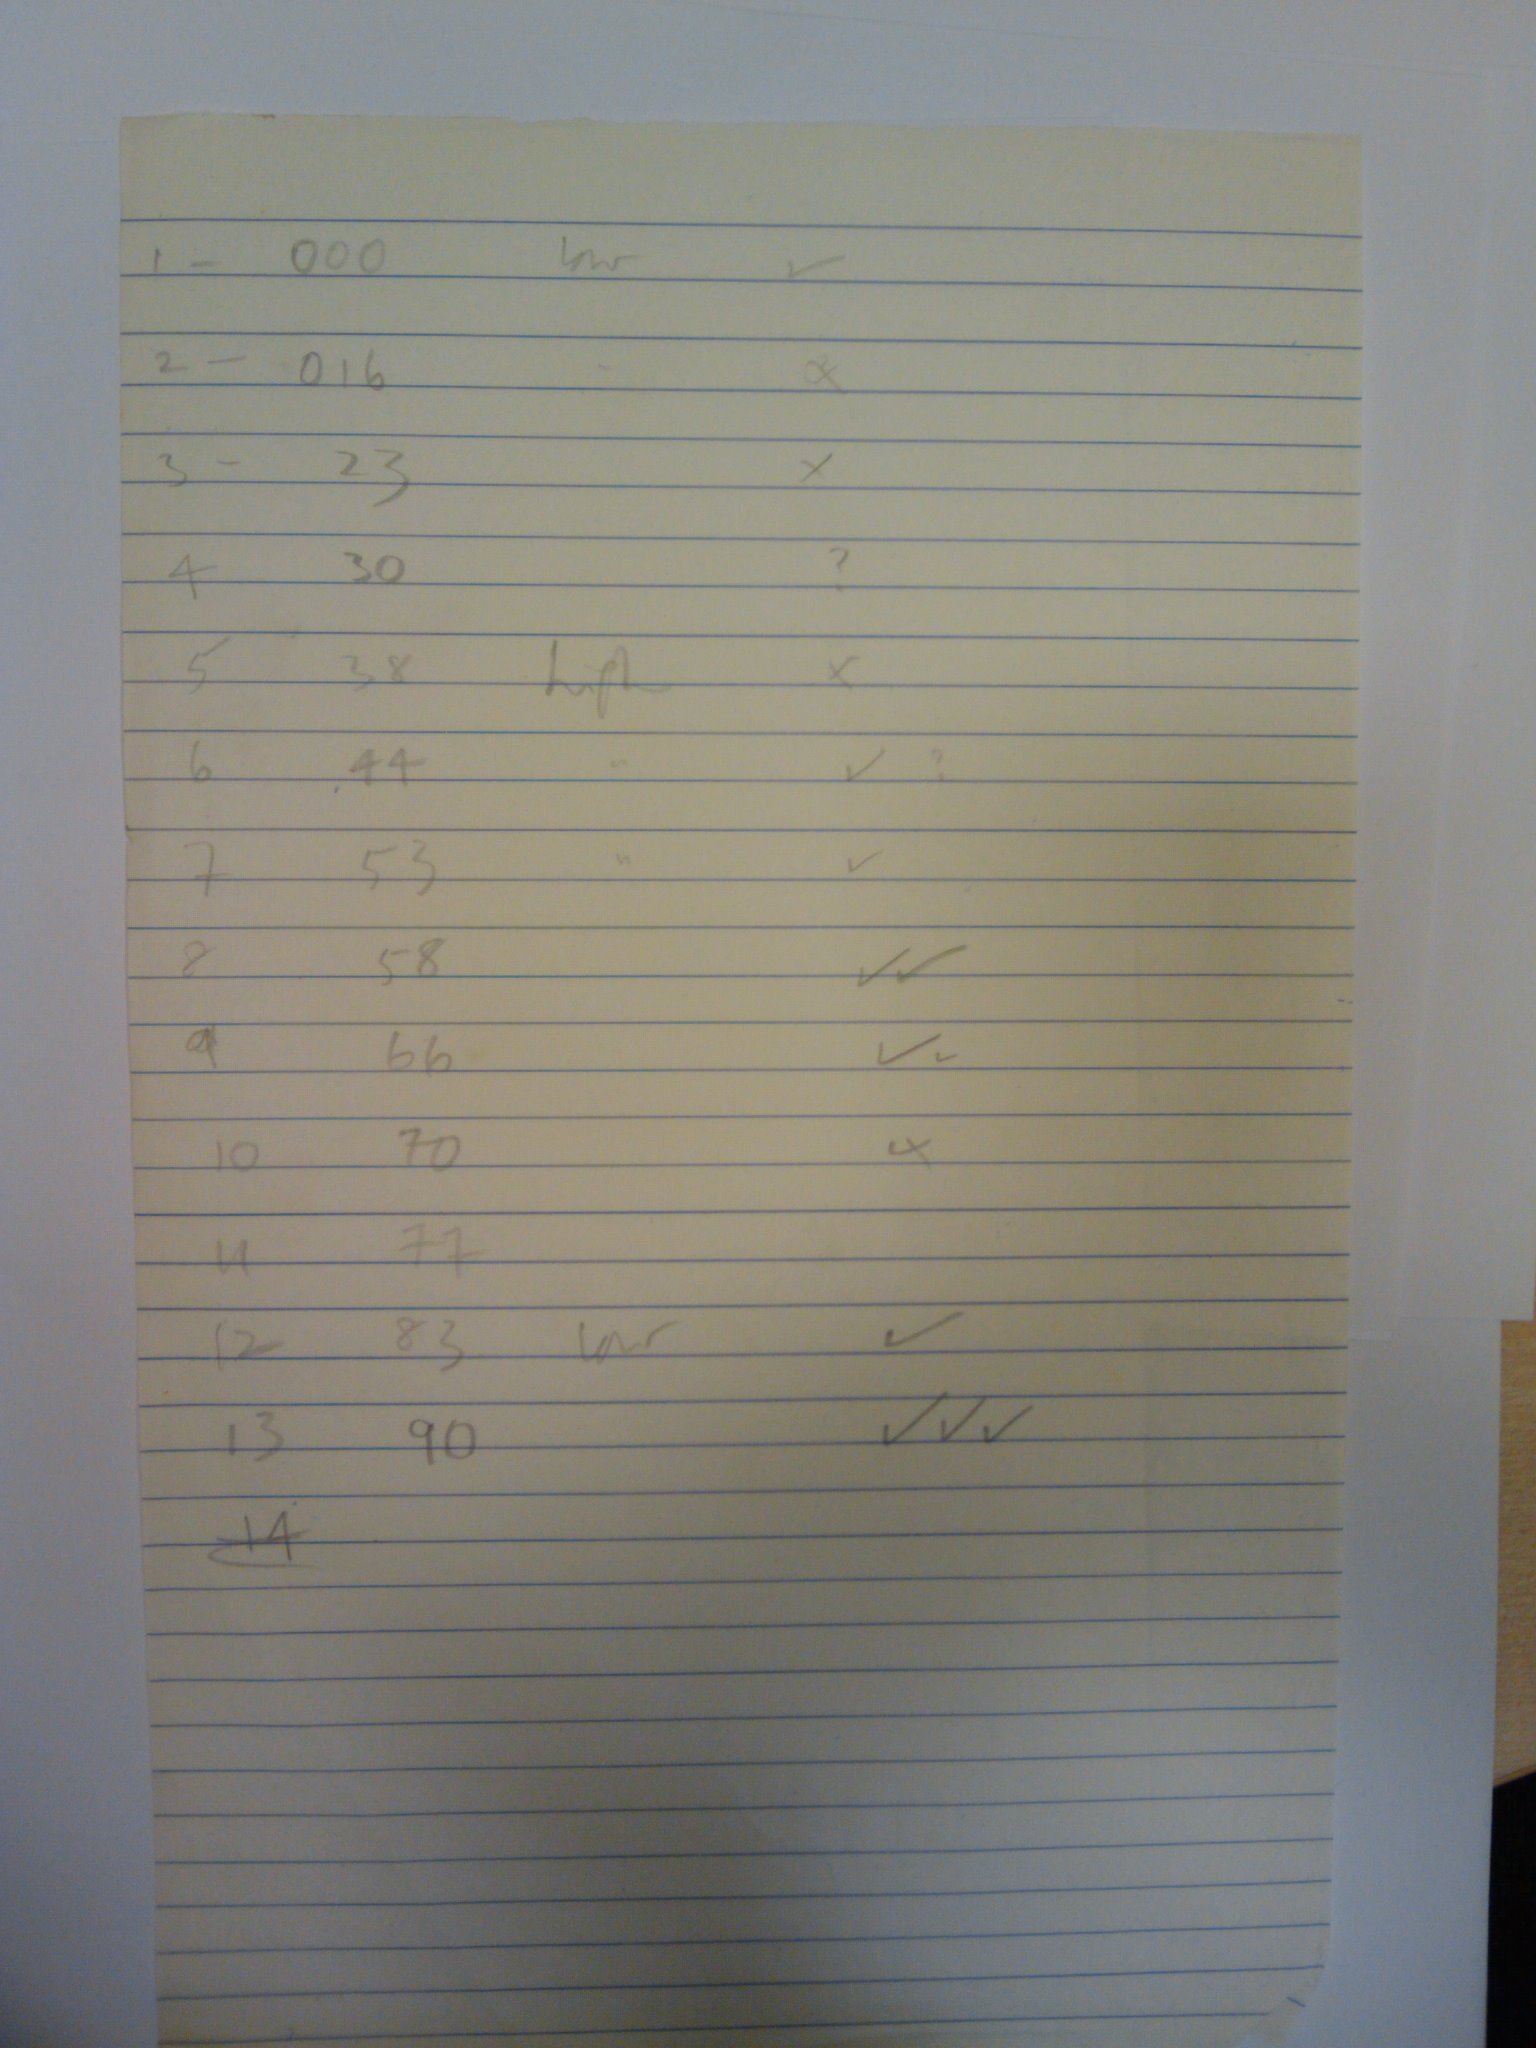 1 - 000 low ✓
2 - 016 " x
3 - 23 x
4 30 ?
5 38 high x
6 44 " ✓ ?
7 53 " ✓
8 58 ✓✓
9 66 ✓✓
10 70 x
11 77
12 83 low ✓
13 90 ✓✓✓
14